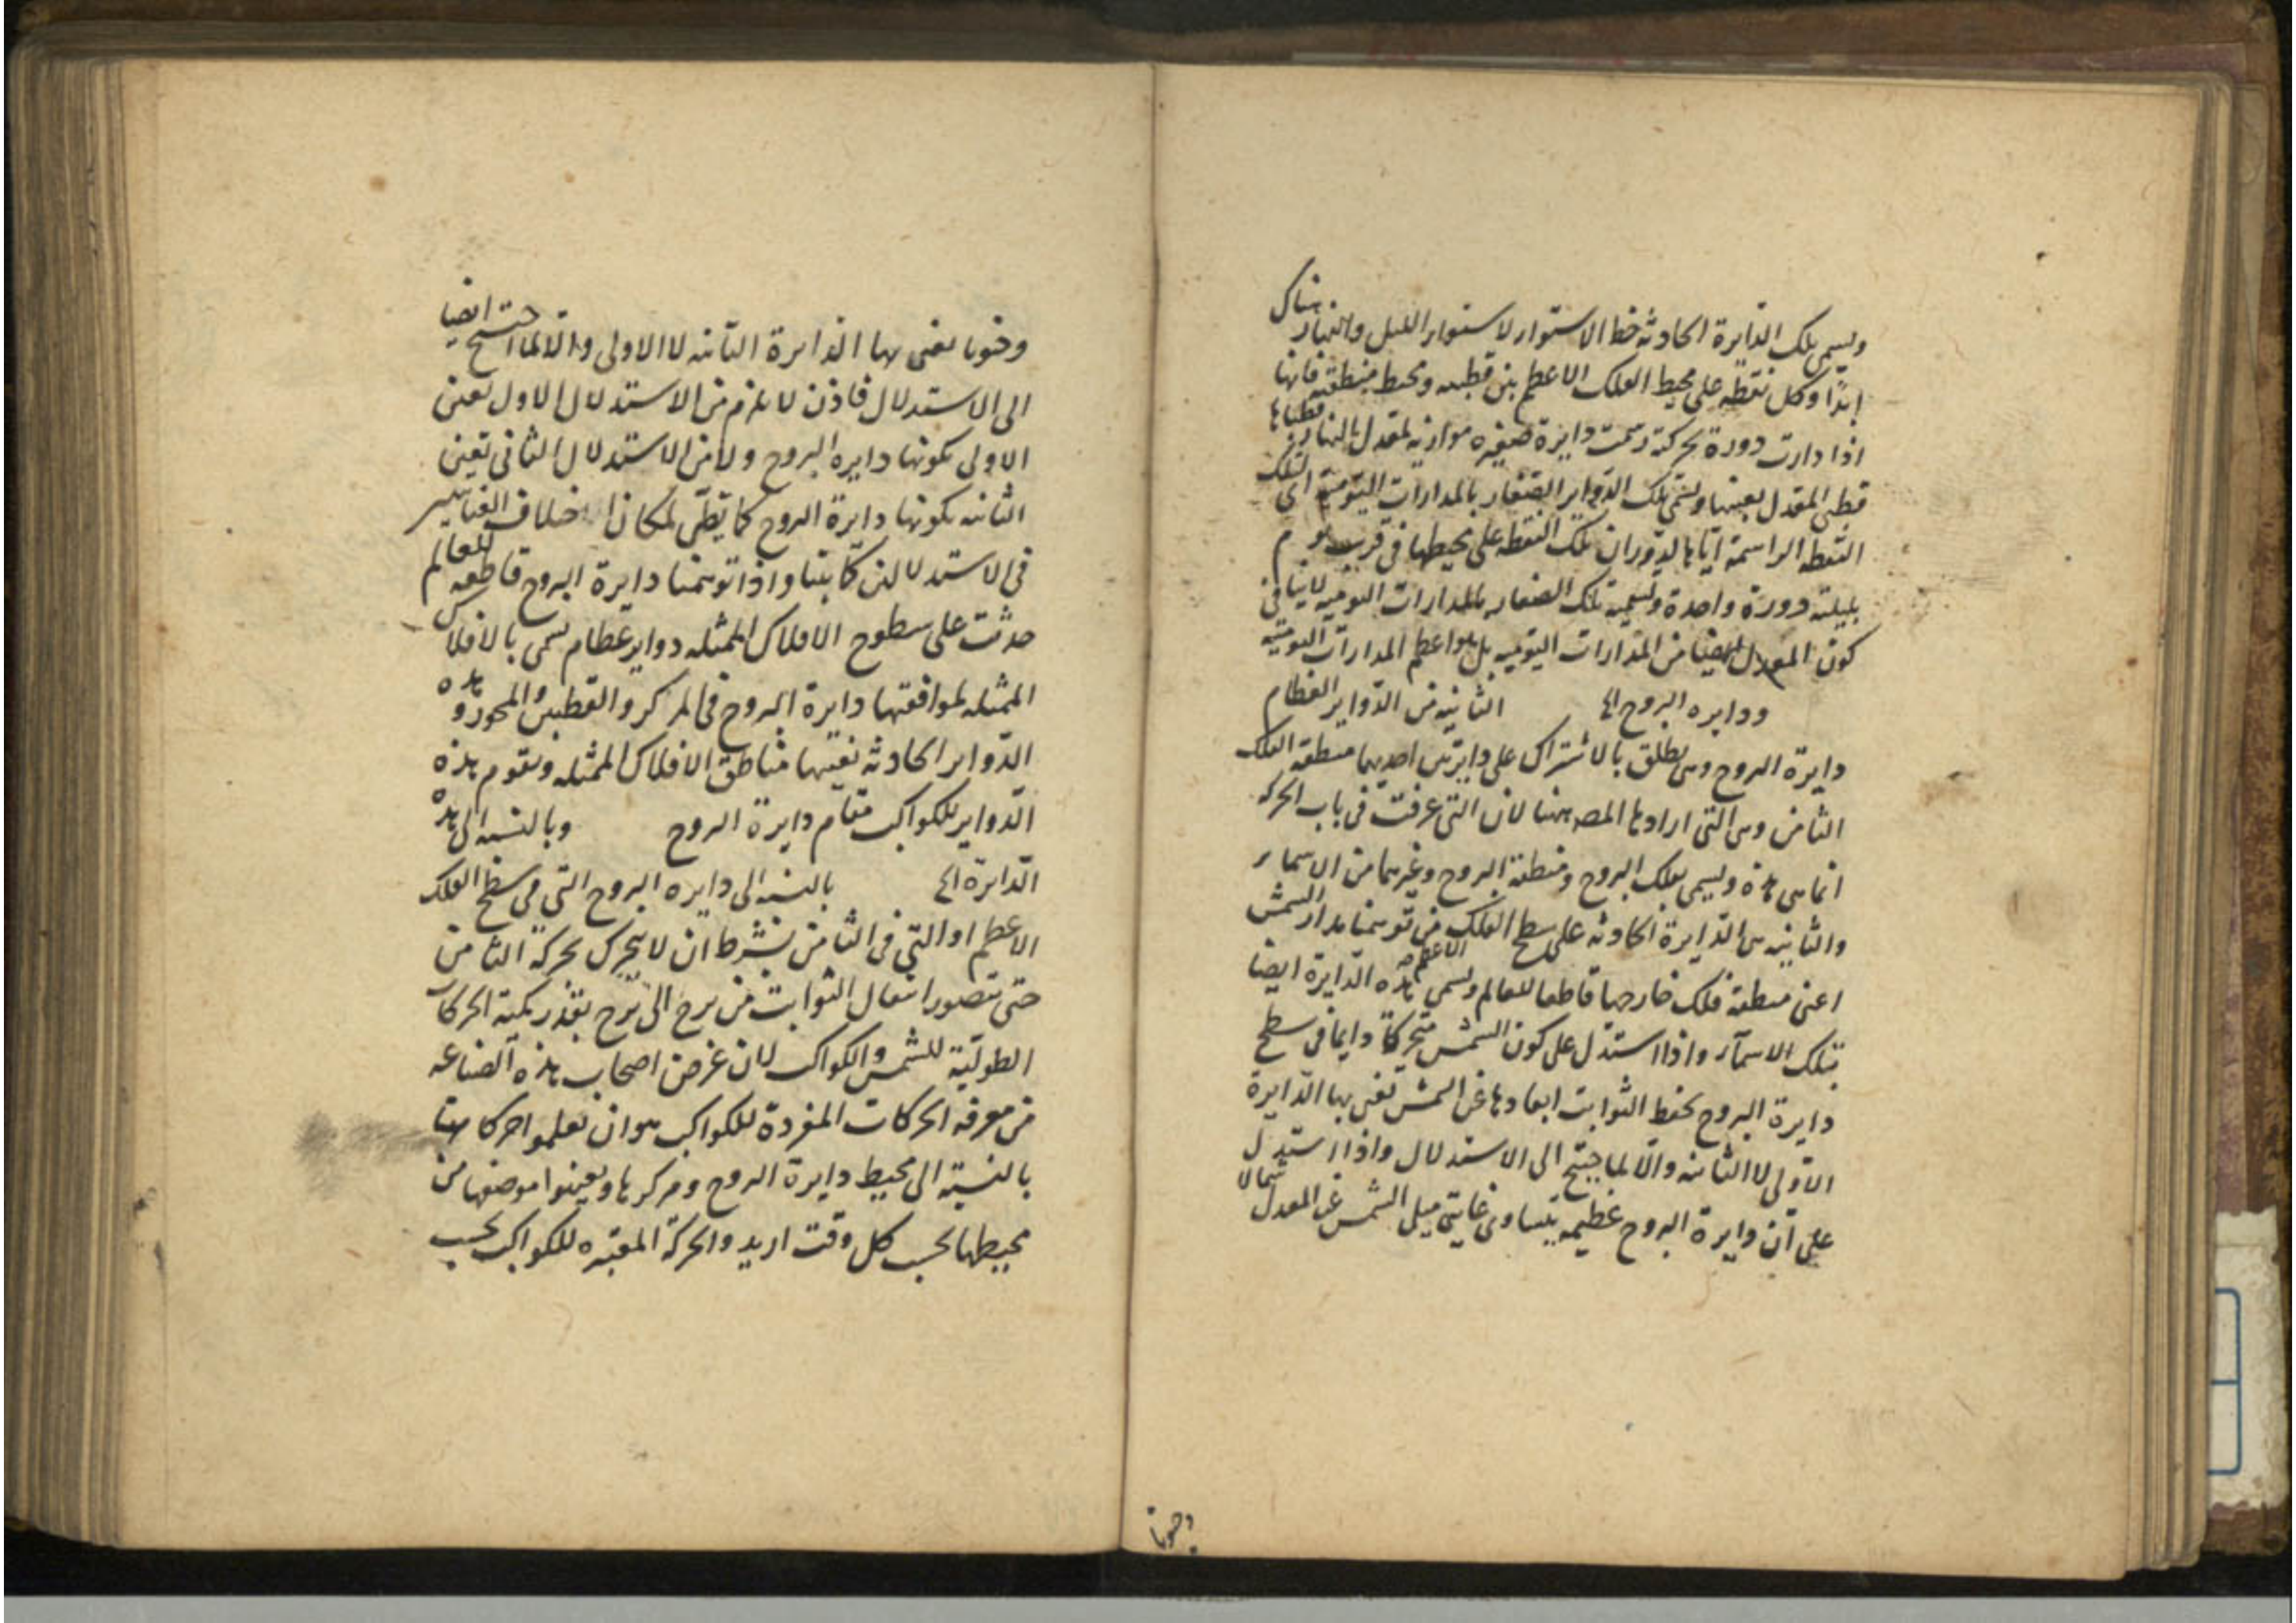 ويسمى تلك الدايرة الحادثة خط الاستواء لاستواء الليل والنهار هناك
ابدا وكل نقطة على محيط الفلك الاعظم بين قطبيه ومحيط منطقته فانها
اذا دارت دورة بحركته رسمت دايرة صغيره موازنه لمعدل النهار قطباها
قطبي المعدل بعينها وتسمى تلك الدواير الصغار بالمدارات اليومية اى لتلك
النقطه الراسمة اياها لدوران تلك النقطة على محيطها في قريب يوم
بليلته دورة واحدة وتسمية تلك الصغار بالمدارات اليوميه لا ينافى
كون المعدل ايضا من المدارات اليوميه بل هو اعظم المدارات اليوميه
ودايره البروج الخ الثانيه من الدواير العظام
دايرة البروج وهى يطلق بالاشتراك على دايرتين احديهما منطقة الفلك
الثامن وهى التى ارادها المصـ ههنا لان التى عرفت في باب الحركه
انما هى هذه ويسمى بفلك البروج ومنطقة البروج وغيرهما من الاسماء
والثانيه هى الدايرة الحادثه على سطح الفلك الاعظم من توهمنا مدار الشمس
اعنى منطقه فلك خارجها قاطعا للعالم ويسمى هذه الدايرة ايضا
بتلك الاسماء واذا استدل على كون الشمس متحركة دايما في سطح
دايرة البروج بحفظ الثوابت ابعادها عن الشمس نعنى بها الدايرة
الاولى لا الثانيه والا لما احتيج الى الاستدلال واذا استدل
على ان دايرة البروج عظيمه بتساوى غايتى ميل الشمس عن المعدل شمالا
وجنوبا
وجنوبا نعنى بها الدايرة الثانيه لا الاولى والا لما احتيج ايضا
الى الاستدلال فاذن لا يلزم من الاستدلال الاول تعين
الاولى بكونها دايره البروج ولا من الاستدلال الثانى تعين
الثانيه بكونها دايرة البروج كما يظن لمكان اختلاف التفاسير
في الاستدلالين كما بينا واذا توهمنا دايرة البروج قاطعه للعالم
حدثت على سطوح الافلاك الممثله دواير عظام تسمى بالافلاك
الممثله لموافقتها دايرة البروج في المركز والقطبين والمحور وهذه
الدواير الحادثه نفسها مناطق الافلاك الممثله وتقوم هذه
الدواير للكواكب مقام دايرة البروج وبالنسبه الى هذه
الدايرة الخ بالنسبه الى دايره البروج التى في سطح الفلك
الاعظم او التى في الثامن بشرط ان لا يتحرك بحركة الثامن
حتى يتصور انتقال الثوابت من برج الى برج بقدر كمية الحركات
الطولية للشمس والكواكب لان غرض اصحاب هذه الصناعه
من معرفه الحركات المفردة للكواكب هو ان يعلموا حركاتها
بالنسبة الى محيط دايرة البروج ومركزها ويعينوا موضعها من
محيطها بحسب كل وقت اريد والحركة المعتبره للكواكب بحسب